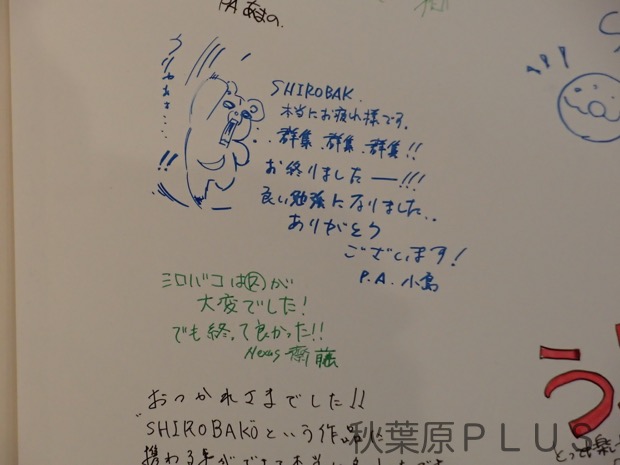 P.A. あまの.
うりゃあぁ……
SHIROBAK.
本当にお疲れ様です.
群集、群集、群集!!
お終りましたー!!!
良い勉強になりました..
ありがとう
ございます!
P.A. 小島
シロバコは が
大変でした!
でも終って良かった!!
Nexus 齋藤
おつかれさまでした!!
"SHIROBAKO という作品に
携わる事ができて本当に
う
秋葉原PLUS
とっても楽し